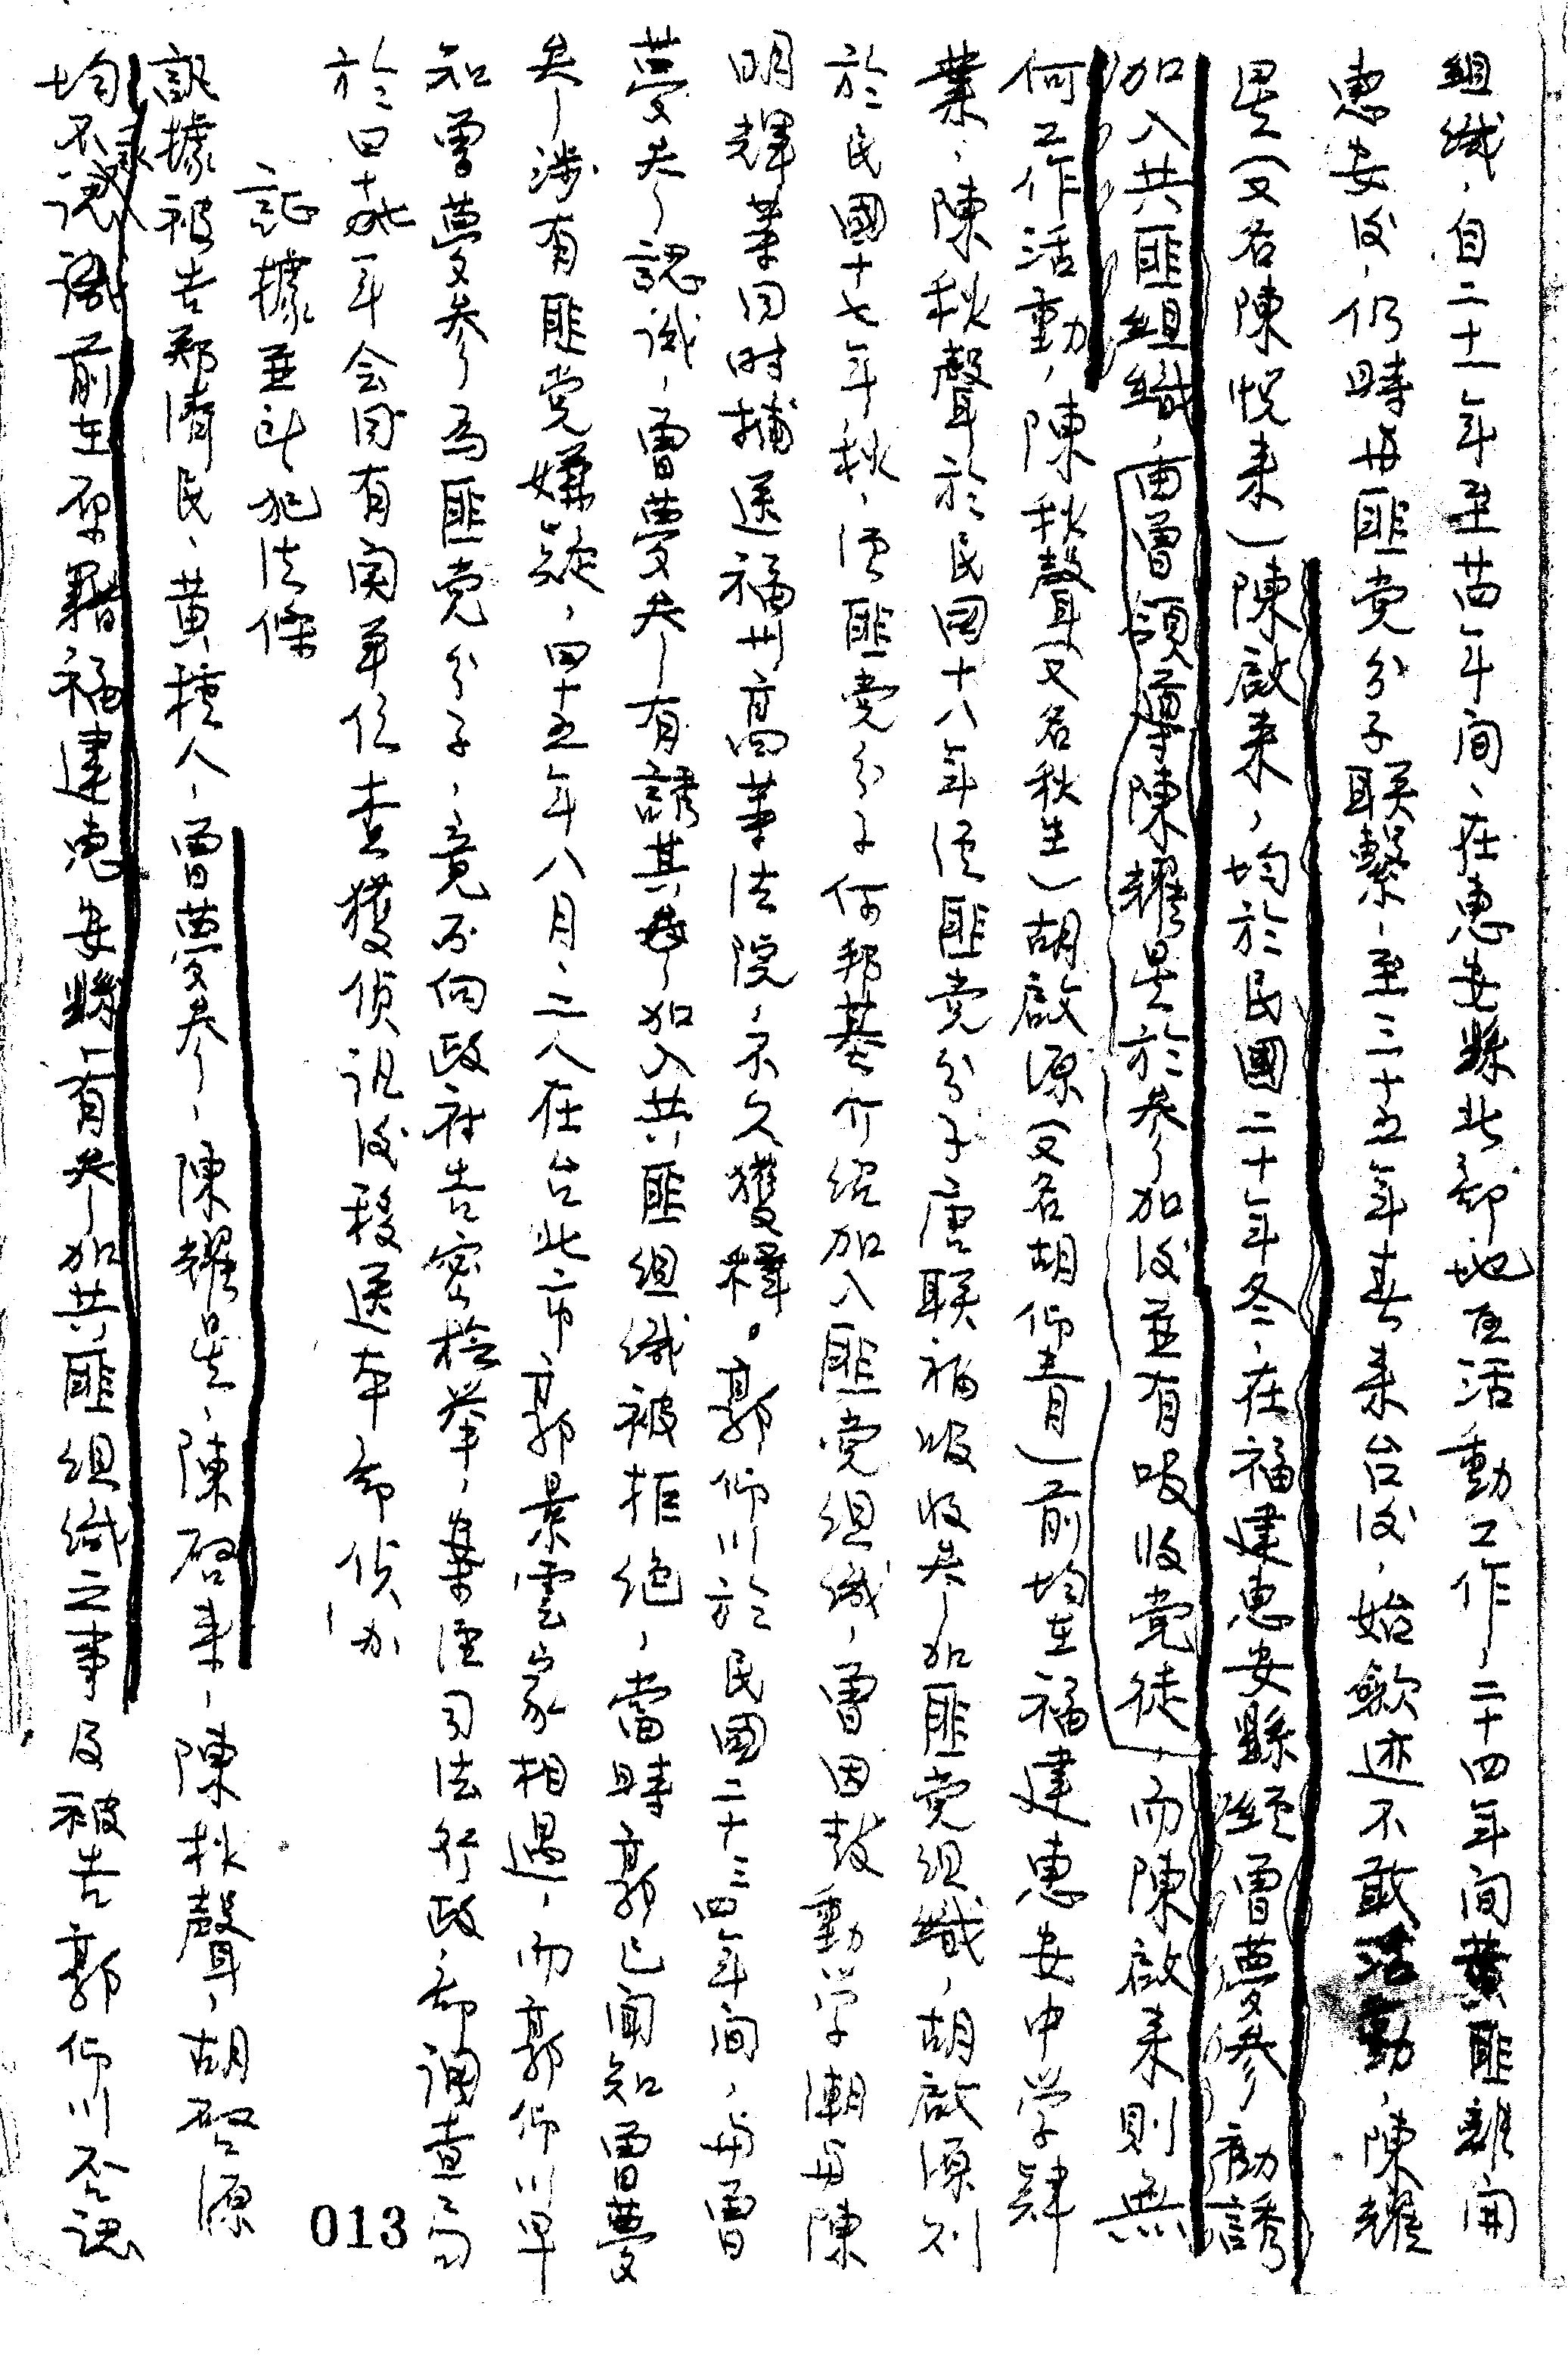 組織，自二十一年至廿年间，在惠安縣北部地区活動工作，二十四年间黄匪離開
惠安後，仍時与匪党分子联繫，至三十五年春来台後，始歛迹不敢活動，陳耀
星（又名陳悦来）陳啟来，均於民國二十年冬，在福建惠安縣經曾夢參勸誘
加入共匪組織，由曾領導陳耀星於參加後並有吸收党徒，而陳啟来則無
何工作活動，陳秋聲（又名秋生）胡啟源（又名胡仰青）前均在福建惠安中学肄
業，陳秋聲於民国十八年经匪党分子唐联福吸收參加匪党組織，胡啟源则
於民國十七年秋，经匪党分子何邦基介绍加入匪党组織，曾因鼓動学潮与陳
明輝等同时捕送福州高等法院，不久獲釋。郭仰川於民國二十三四年间，与曾
夢參認識，曾夢參有誘其參加入共匪组織被拒绝，當時郭已闻知曾夢
參涉有匪党嫌疑，四十五年八月，二人在台北市郭景雲家相遇，而郭仰川早
知曾夢參為匪党分子，竟不向政府告密檢举，案经司法行政部调查局
於四十 年会同有関单位查獲侦讯後移送本部侦办
証據並所犯法條
訊據被告郑清民，黄種人，曾夢參，陳耀星，陳启来，陳秋聲，胡启源
均不 識前在原籍福建惠安縣有參加共匪组織之事及被告郭仰川否認
013